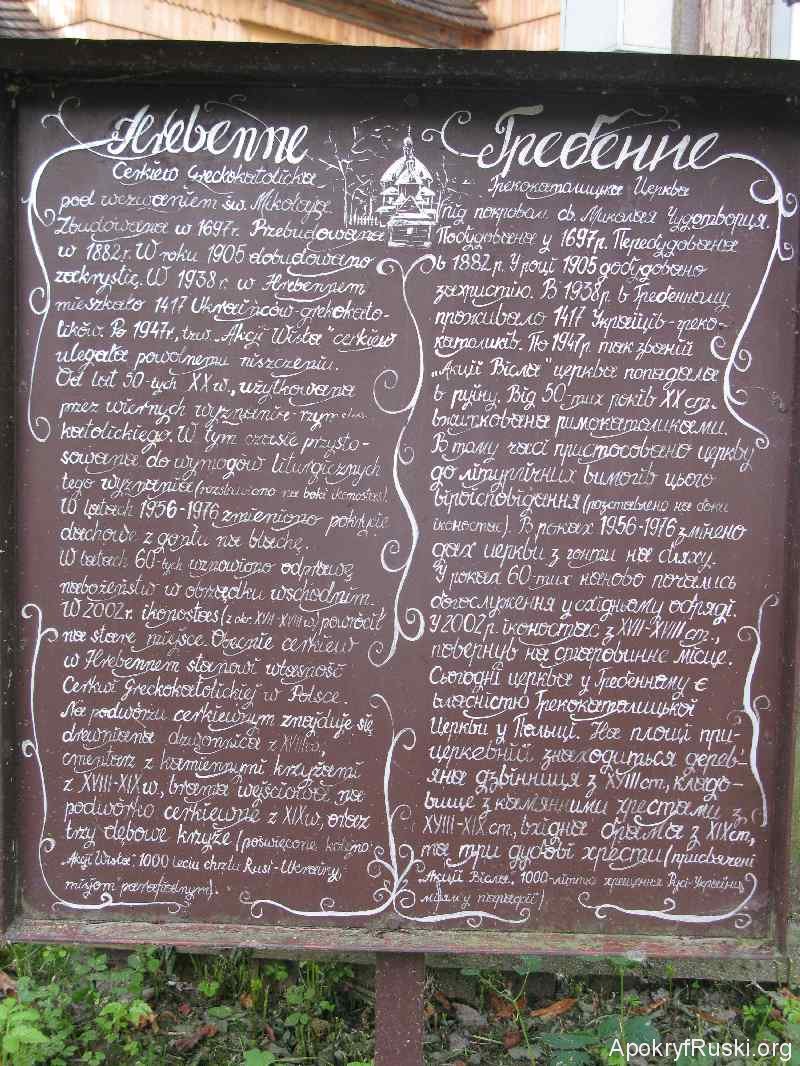 Hrebenne
Cerkiew Greckokatolicka
pod wezwaniem św. Mikołaja.
Zbudowana w 1697r. Przebudowana
w 1882r. W roku 1905 dobudowano
zakrystię. W 1938r. w Hrebennem
mieszkało 1417 Ukraińców-grekokato-
lików. Po 1947r., tzw. „Akcji Wisła" cerkiew
ulegała powolnemu niszczeniu.
Od lat 50-tych XXw., użytkowana
przez wiernych wyznania rzym
katolickiego. W tym czasie przysto-
sowana do wymogów liturgicznych
tego wyznania (rozstawiono na boki ikonostas).
W latach 1956-1976 zmieniono pokrycie
dachowe z gontu na blachę.
W latach 60-tych wznowiono odprawę
nabożeństw w obrządku wschodnim.
W 2002r. ikonostas (z okr. XVII-XVIIIw) powrócił
na stare miejsce. Obecnie cerkiew
w Hrebennem stanowi własność
Cerkwi Greckokatolickiej w Polsce.
Na podwórzu cerkiewnym znajduje się
drewniana dzwonnica z XVIIIw,
cmentarz z kamiennymi krzyżami
z XVIII-XIXw, brama wejściowa na
podwórko cerkiewne z XIXw, oraz
trzy dębowe krzyże (poświęcone kolejno:
„Akcji Wisła", 1000 leciu chrztu Rusi-Ukrainy
misjom parafialnym).
Гребенне
Грекокатолицька Церква
під покровом св. Миколая Чудотворця.
Побудована у 1697р. Перебудована
в 1882р. У році 1905 добудовано
захистію. В 1938р. в Гребенному
проживало 1417 Українців-греко-
католиків. По 1947р. так званій
„Акції Вісла" церква попадала
в руїну. Від 50-тих років XX ст.
вжиткована римокатоликами.
В тому часі пристосовано церкву
до літургічних вимогів цього
віроісповідання (розставлено на боки
іконостас). В роках 1956-1976 змінено
дах церкви з гонти на бляху.
У роках 60-тих наново почались
богослуження у східньому обряді.
У 2002р. іконостас з XVII-XVIII ст.,
повернув на старовинне місце.
Сьогодні церква у Гребенному є
власністю Грекокатолицької
Церкви у Польщі. На площі при-
церкевній знаходиться дерев-
яна дзвінниця з XVIII ст, кладо-
вище з камянними хрестами з
XVIII-XIX ст, вхідна брама з XIX ст,
та три дубові хрести (присвячені
„Акції Вісла", 1000-літтю хрещення Русі-України,
місям у парафії)
ApokryfRuski.org